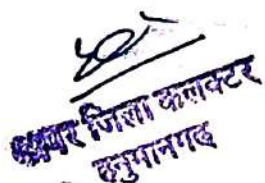 अपर जिला कलक्टर
हनुमानगढ़